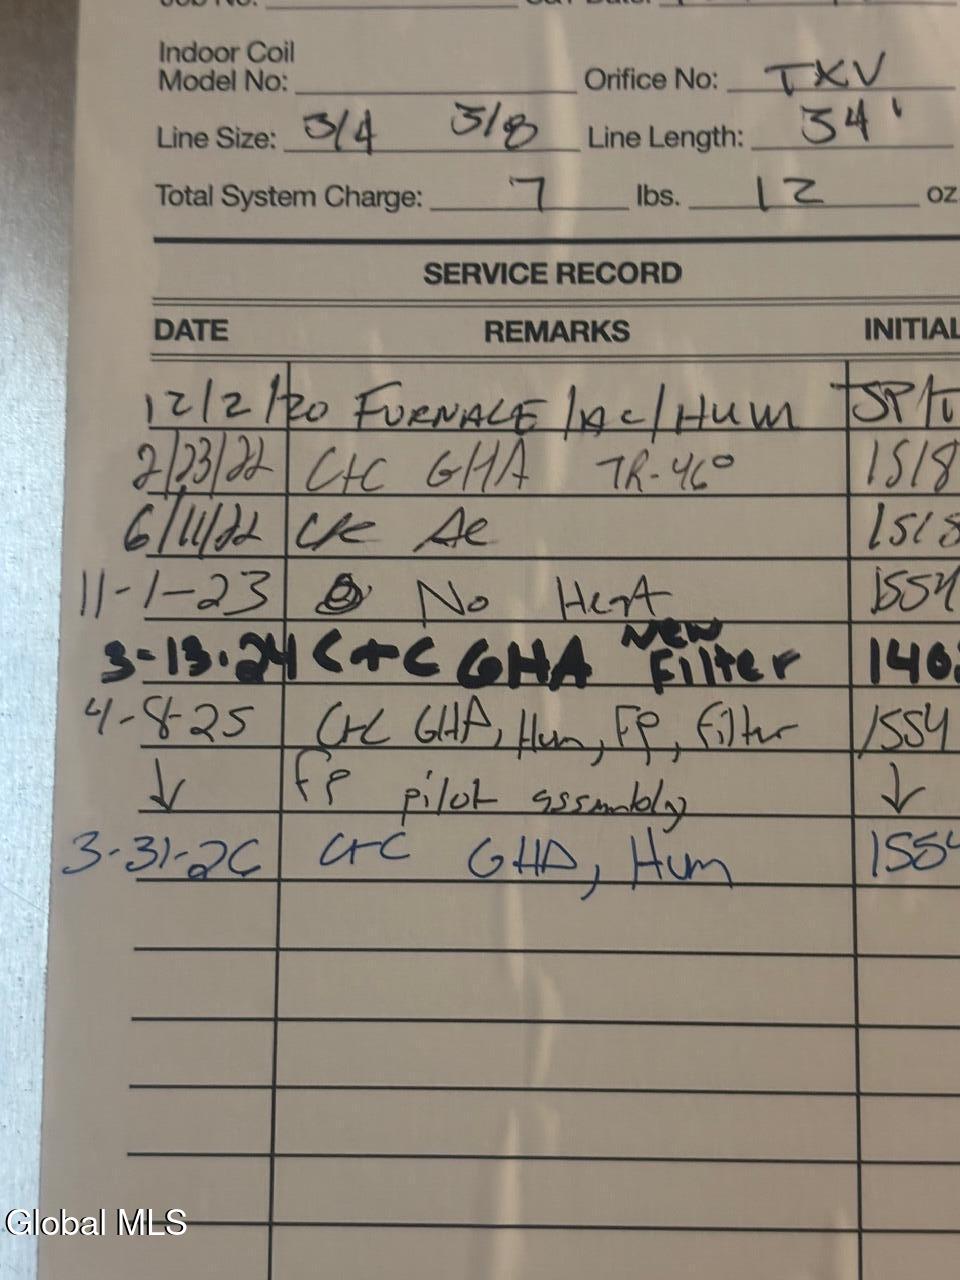 Indoor Coil
Model No: Orifice No: TXV
Line Size: 3/4 3/8 Line Length: 34'
Total System Charge: 7 lbs. 12 oz
SERVICE RECORD
DATE REMARKS INITIAL
12/2/20 FURNACE/AC/HUM JSP/
2/23/22 C+C GHA TR-46° 1518
6/11/22 CK AC 1518
11-1-23 No Heat 1554
3-13-24 C+C GHA NEW Filter 140
4-8-25 C+C GHA, Hum, FP, Filter 1554
↓ FP pilot assembly ↓
3-31-26 C+C GHA, Hum 1554
Global MLS